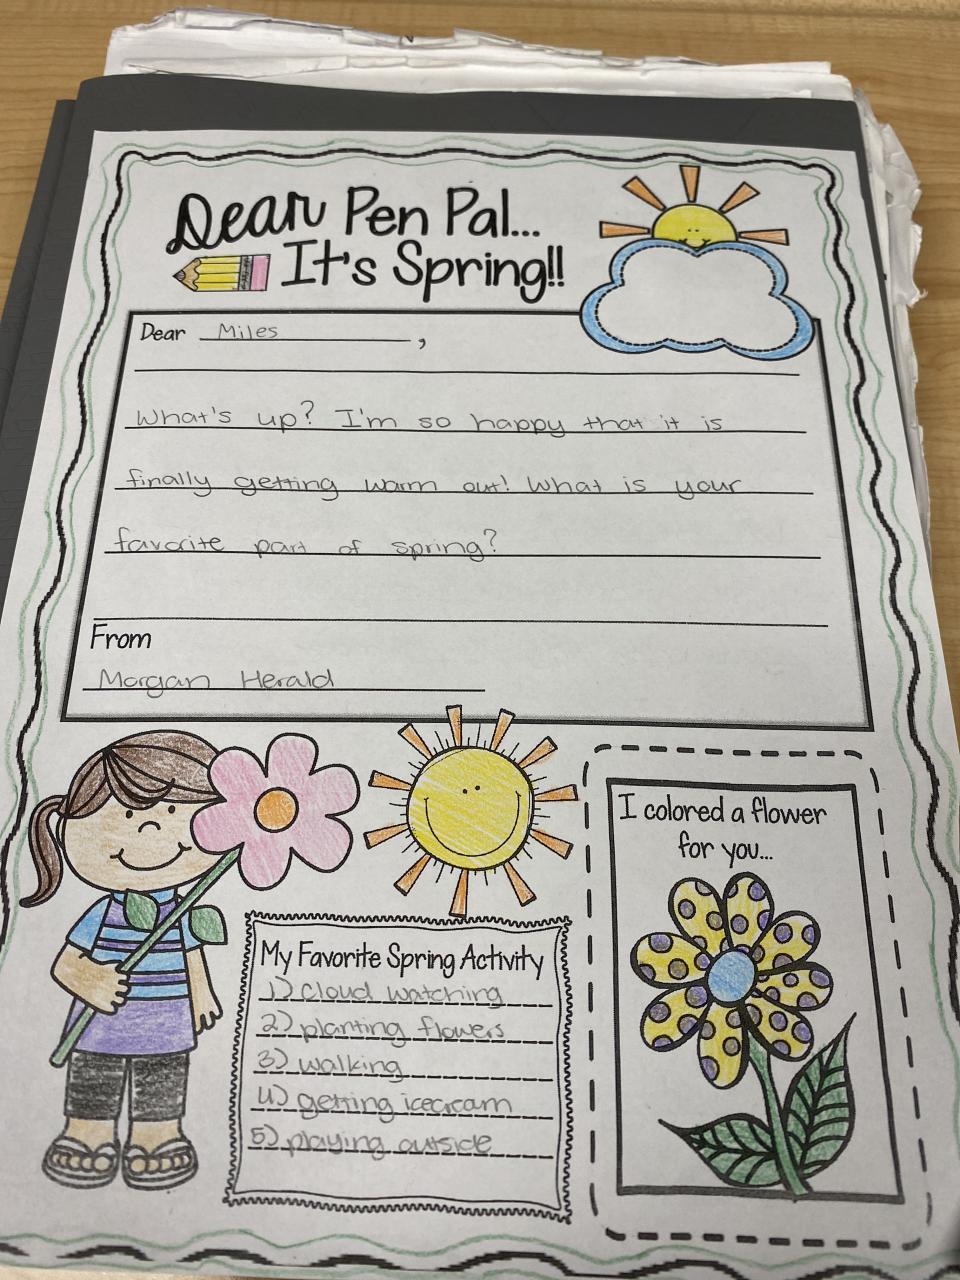 Dear Pen Pal...
It's Spring!!
Dear Miles,
What's up? I'm so happy that it is
finally getting warm out! What is your
favorite part of spring?
From
Morgan Herald
My Favorite Spring Activity
1) cloud watching
2) planting flowers
3) walking
4) getting icecream
5) playing outside
I colored a flower
for you...